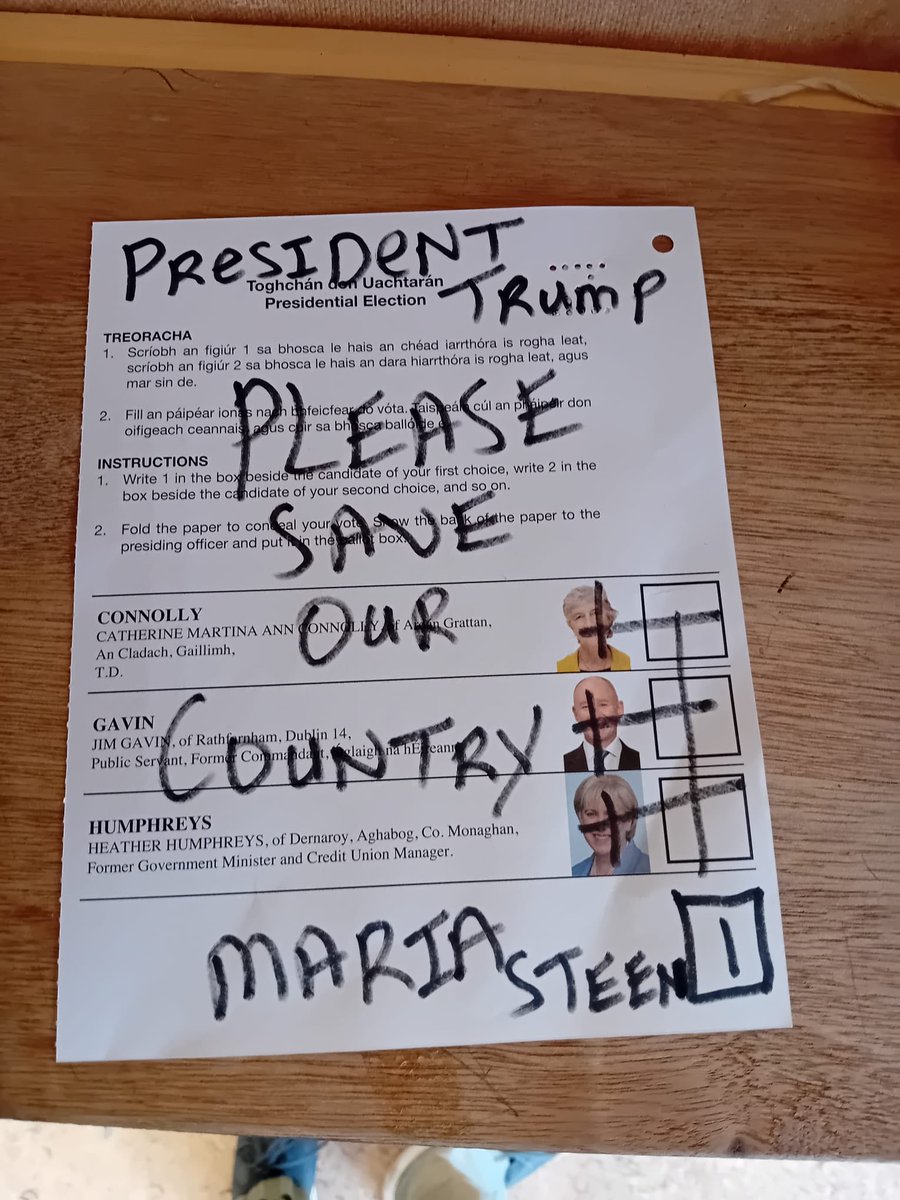 PResIDeNT
TRump
Toghchán don Uachtarán
Presidential Election
TREORACHA
1. Scríobh an figiúr 1 sa bhosca le hais an chéad iarrthóra is rogha leat,
scríobh an figiúr 2 sa bhosca le hais an dara hiarrthóra is rogha leat, agus
mar sin de.
PLEASE
2. Fill an páipéar ionas nach bhfeicfear do vóta. Taispeáin cúl an pháipéir don
oifigeach ceannais, agus cuir sa bhosca ballóide é.
INSTRUCTIONS
1. Write 1 in the box beside the candidate of your first choice, write 2 in the
box beside the candidate of your second choice, and so on.
SAVE
2. Fold the paper to conceal your vote. Show the back of the paper to the
presiding officer and put it in the ballot box.
OUR
CONNOLLY
CATHERINE MARTINA ANN CONNOLLY, of Grattan,
An Cladach, Gaillimh,
T.D.
COUNTRY
GAVIN
JIM GAVIN, of Rathfarnham, Dublin 14,
Public Servant, Former Commandant, Óglaigh na hÉireann.
HUMPHREYS
HEATHER HUMPHREYS, of Dernaroy, Aghabog, Co. Monaghan,
Former Government Minister and Credit Union Manager.
MARIA STEEN 1